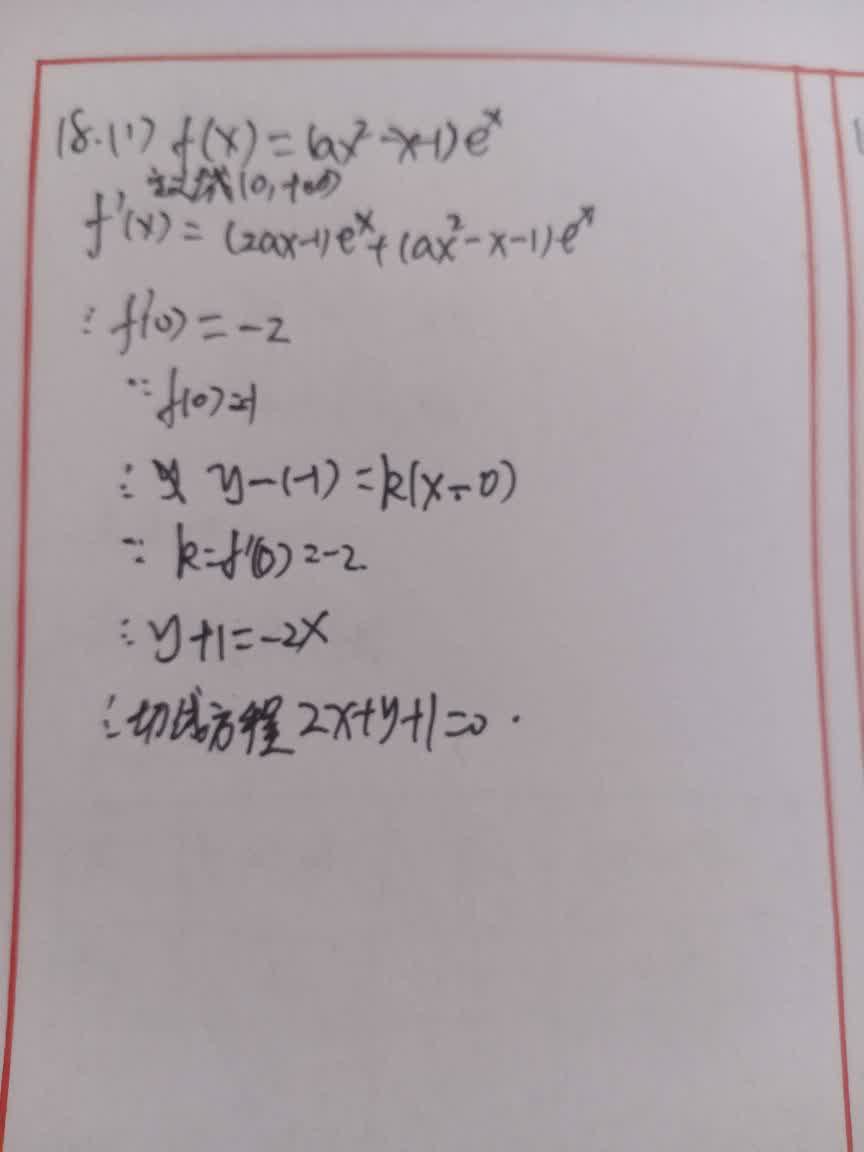 18.(1) f(x)=(ax²-x-1)e^x
(0,+∞)
f'(x)=(2ax-1)e^x+(ax²-x-1)·e^x
∴f'(0)=-2
∵f(0)=-1
∴ y-(-1)=k(x-0)
∵ k=f'(0)=-2.
∴y+1=-2x
∴切线方程2x+y+1=0.